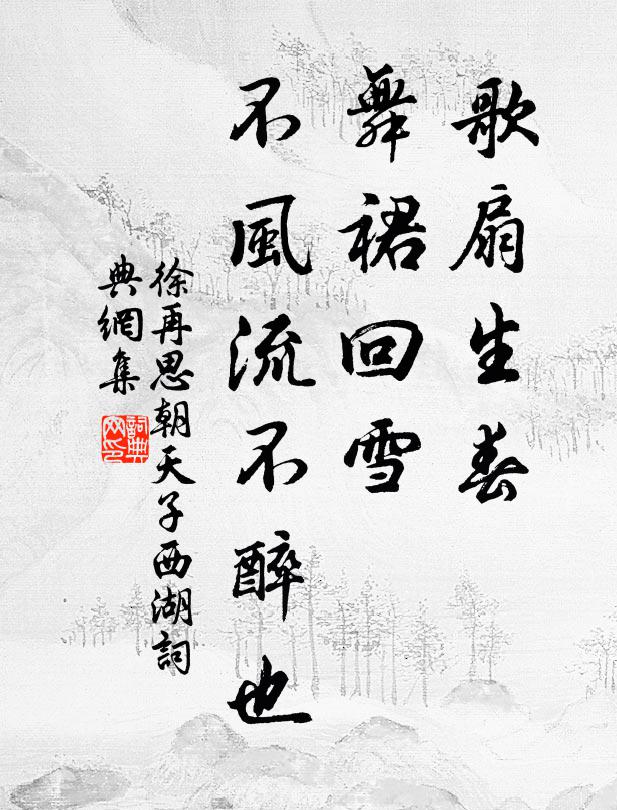 歌扇生春
舞裙回雪
不風流不醉也
徐再思朝天子西湖詞
典網集
詞典
网印